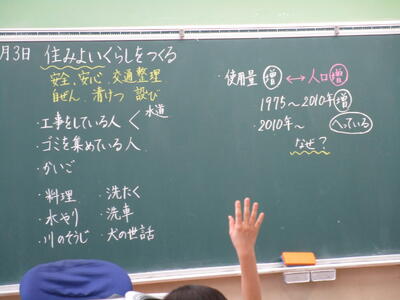 月3日 住みよいくらしをつくる
安全、安心、交通整理
自ぜん、清けつ 設び
・工事をしている人 < 水道
・ゴミを集めている人
・かいご
・料理 ・洗たく
・水やり ・洗車
・川のそうじ ・犬の世話
・使用量 増 ↔ 人口 増
1975〜2010年 増
・2010年〜 へっている
なぜ?